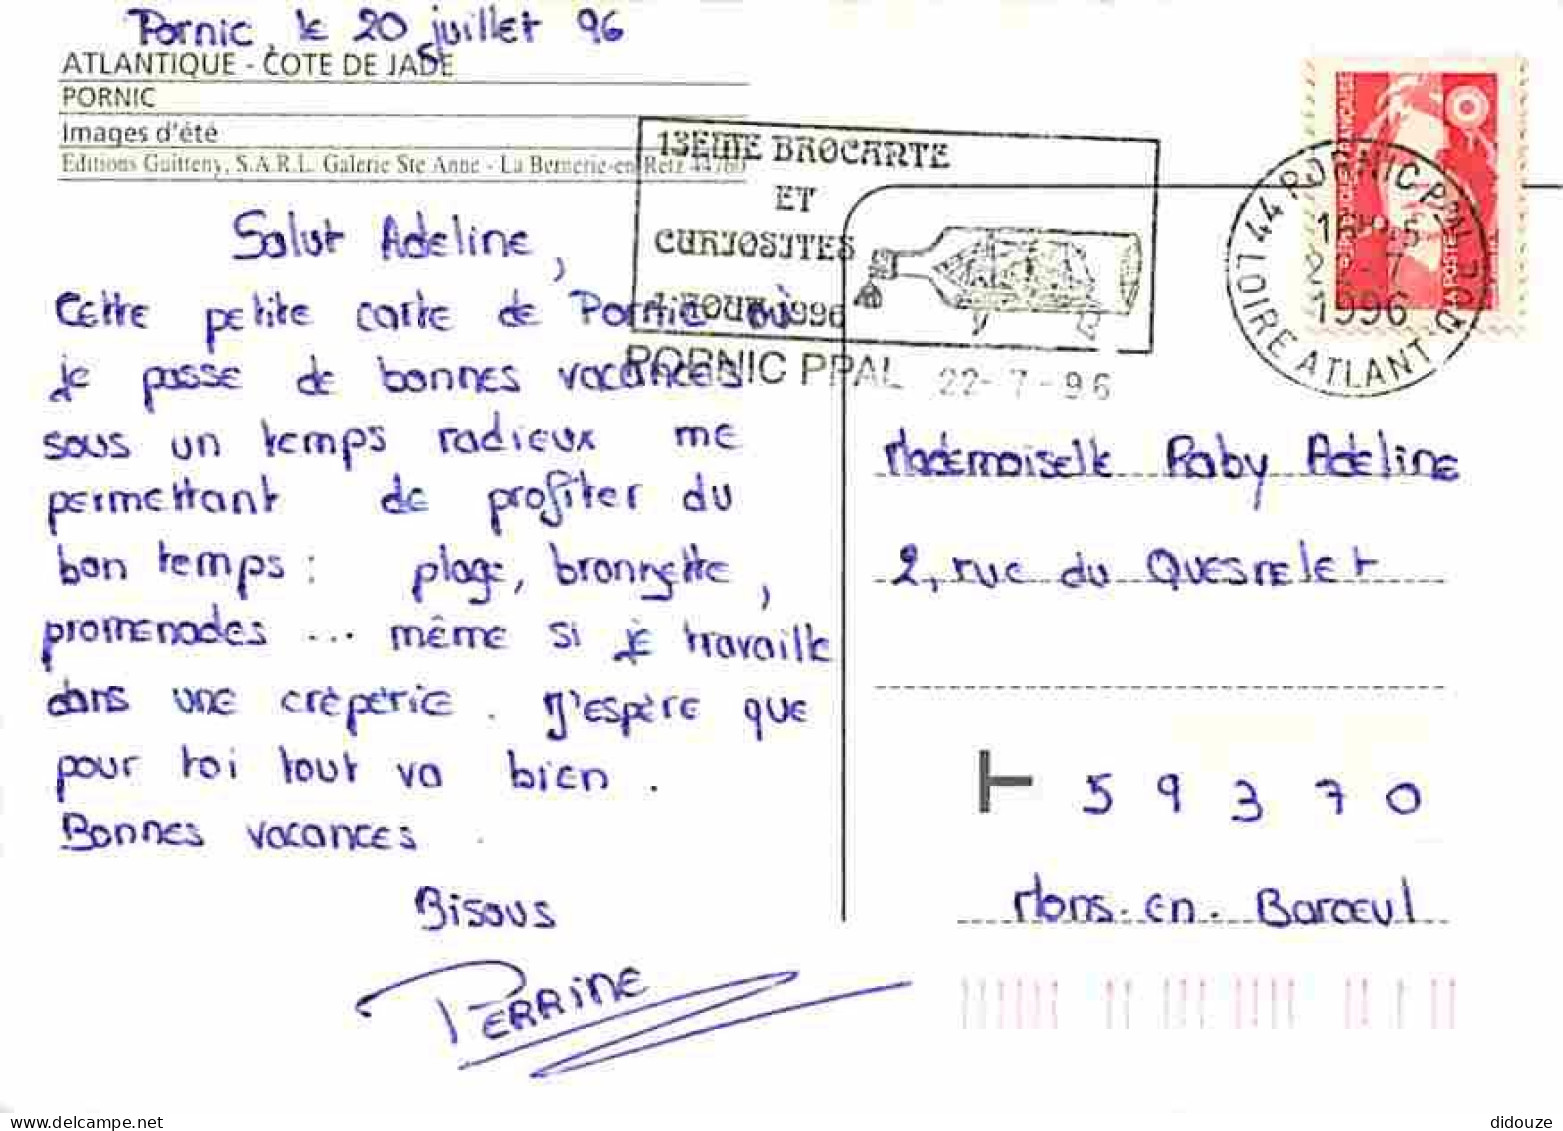 Pornic, le 20 juillet 96
ATLANTIQUE - COTE DE JADE
PORNIC
Images d'été
Editions Guitteny, S.A.R.L. Galerie Ste Anne - La Bernerie-en-Retz 44760
13EME BROCANTE
ET
CURIOSITES
AOUT 1996
PORNIC PPAL 22-7-96
44 PORNIC PPAL
1996
LOIRE ATLANTIQUE
Salut Adeline,
Cette petite carte de Pornic où
je passe de bonnes vacances
sous un temps radieux me
permettant de profiter du
bon temps : plage, bronzette,
promenades ... même si je travaille
dans une crêperie. J'espère que
pour toi tout va bien.
Bonnes vacances.
Bisous
PERRINE
Mademoiselle Raby Adeline
2, rue du Quesnelet
59370
Mons-en-Baroeul
didouze